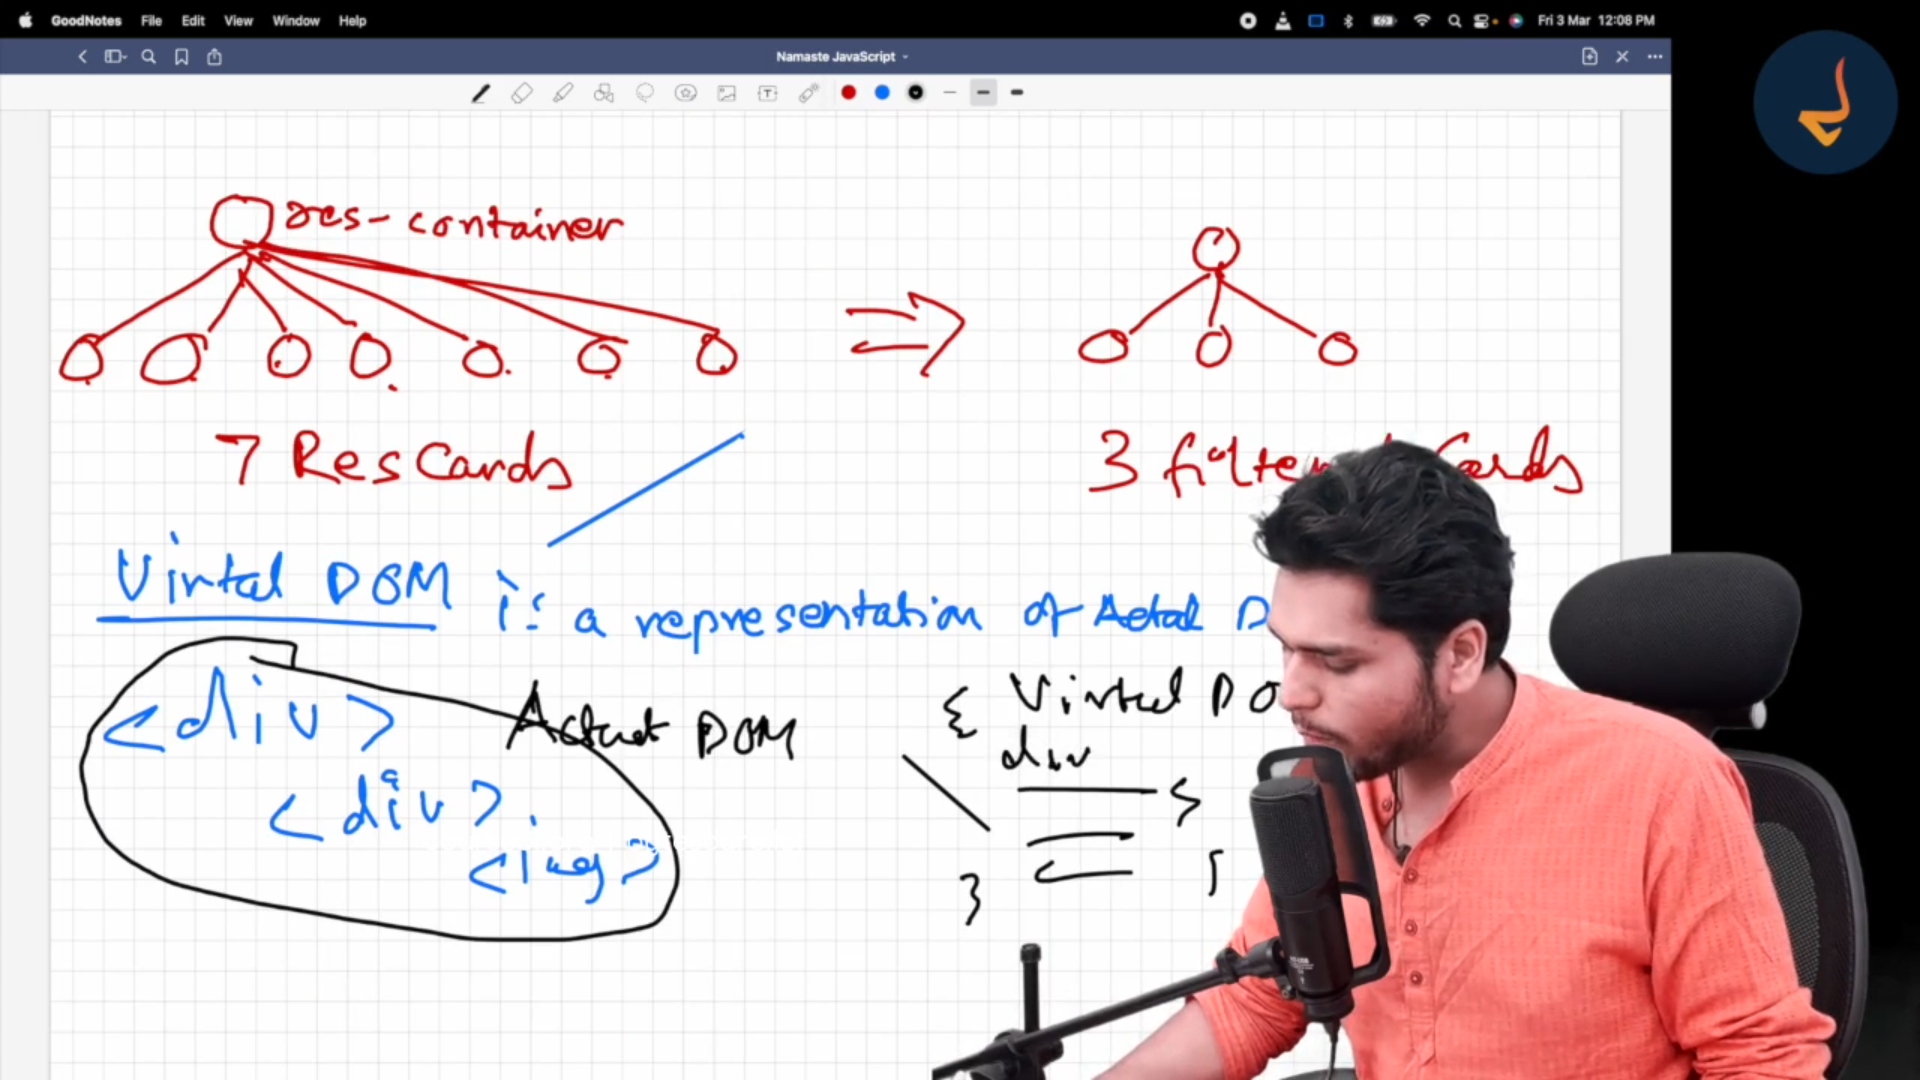 GoodNotes File Edit View Window Help Fri 3 Mar 12:08 PM
Namaste JavaScript
T
res-container
7 ResCards
3 Cards
Virtal DOM is a representation of Actal D
<div> Actual DOM
{ Virtual DO
div
<div>
<img>
}